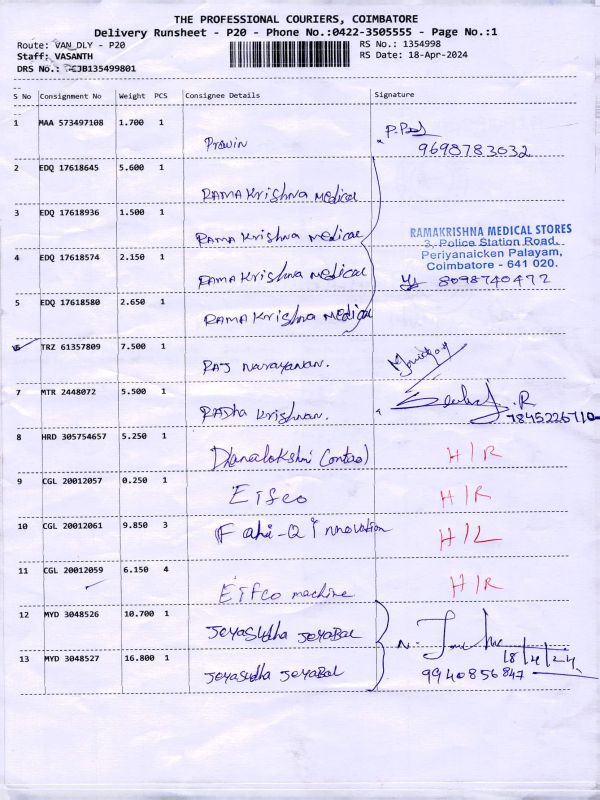 THE PROFESSIONAL COURIERS, COIMBATORE
Delivery Runsheet - P20 - Phone No.:0422-3505555 - Page No.:1
Route: VAN_DLY - P20
RS No.: 1354998
Staff: VASANTH
RS Date: 18-Apr-2024
DRS No.: CJB135499801
S No Consignment No Weight PCS Consignee Details Signature
1 MAA 573497108 1.700 1
Prawin
9698783032
2 EDQ 17618645 5.600 1
RAMA Krishna Medical
3 EDQ 17618936 1.500 1
RAMA Krishna Medical
RAMAKRISHNA MEDICAL STORES
3, Police Station Road,
Periyanaicken Palayam,
Coimbatore - 641 020.
4 EDQ 17618574 2.150 1
RAMA Krishna Medical
8098740472
5 EDQ 17618580 2.650 1
RAMA Krishna Medical
TRZ 61357809 7.500 1
RAJ Narayanan.
7 MTR 2448072 5.500 1
RADha Krishnan.
7845226710
8 HRD 305754657 5.250 1
Dhanalakshmi
H/R
9 CGL 20012057 0.250 1
H/R
10 CGL 20012061 9.850 3
innovation
H/L
11 CGL 20012059 6.150 4
machine
H/R
12 MYD 3048526 10.700 1
Jeyasudha Jeyabal
18/4/24
13 MYD 3048527 16.800 1
Jeyasudha Jeyabal
9940856847